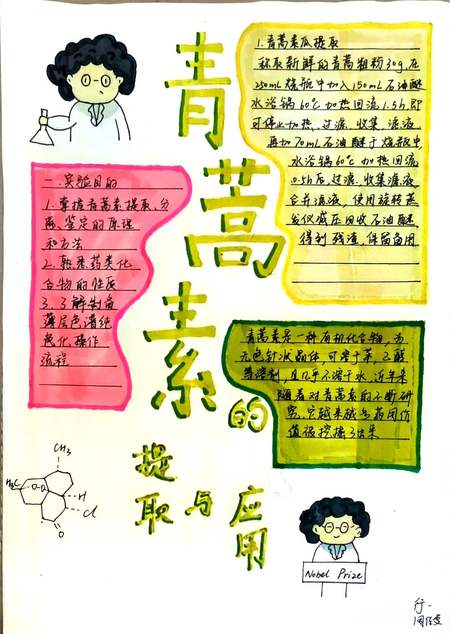 青蒿素的
提取与应用
1.青蒿素瓜提取
称取新鲜的青蒿粗粉30g,在
250mL烧瓶中加入150mL石油醚
水浴锅60℃加热回流1.5h,即
可停止加热,过滤,收集,滤液
再加70mL石油醚于烧瓶中
水浴锅60℃加热回流
0.5h后,过滤,收集滤液,
合并滤液,使用旋转蒸
发仪减压回收石油醚,
得到残渣,保留备用
一.实验目的
1.掌握青蒿素提取、分
离、鉴定的原理
和方法
2.熟悉药类化
合物的性质
3.了解制备
薄层色谱纯
化,操作
流程
青蒿素是一种有机化合物,为
无色针状晶体,可溶于苯、乙醚
等溶剂,且几乎不溶于水,近年来
随着对青蒿素的不断研
究,它越来越多药用价
值很挖掘了出来
CH3
H3C
O
O
H
Cl
O
Nobel Prize